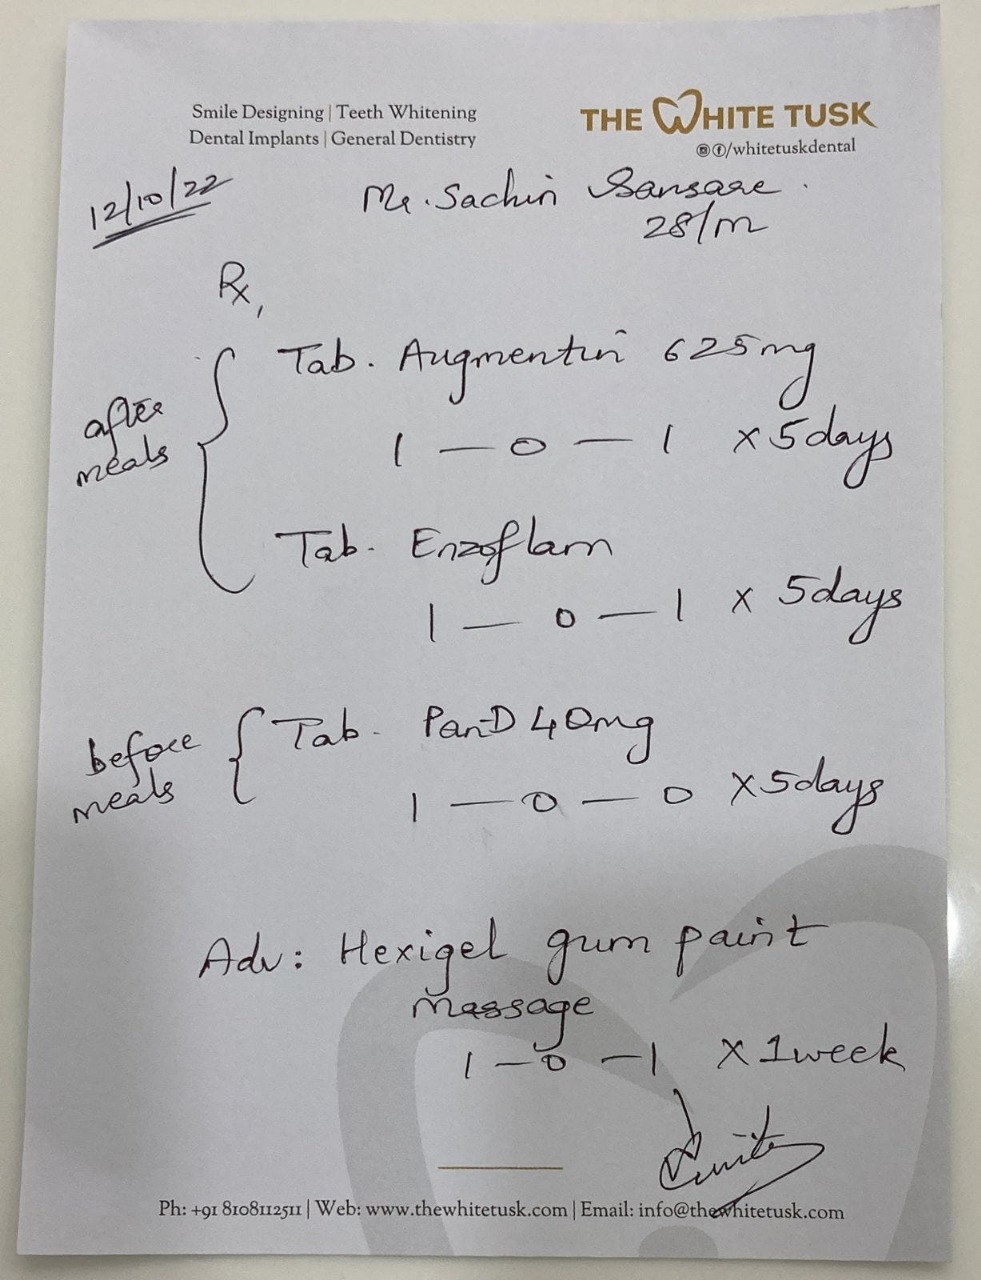 Smile Designing | Teeth Whitening
Dental Implants | General Dentistry
THE WHITE TUSK
/whitetuskdental
12/10/22
Mr. Sachin Sansare.
28/m
Rx,
after meals
Tab. Augmentin 625mg
1 — 0 — 1 x 5days
Tab. Enzoflam
1 — 0 — 1 x 5days
before meals
Tab. Pan-D 40mg
1 — 0 — 0 x 5days
Adv: Hexigel gum paint
massage
1 — 0 — 1 x 1week
Ph: +91 8108112511 | Web: www.thewhitetusk.com | Email: info@thewhitetusk.com